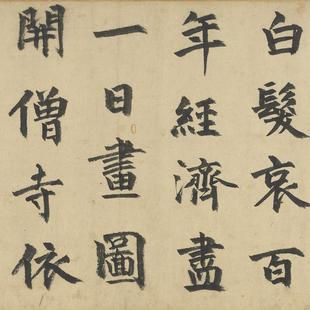 白髮哀百
年經濟盡
一日畫圖
開僧寺依